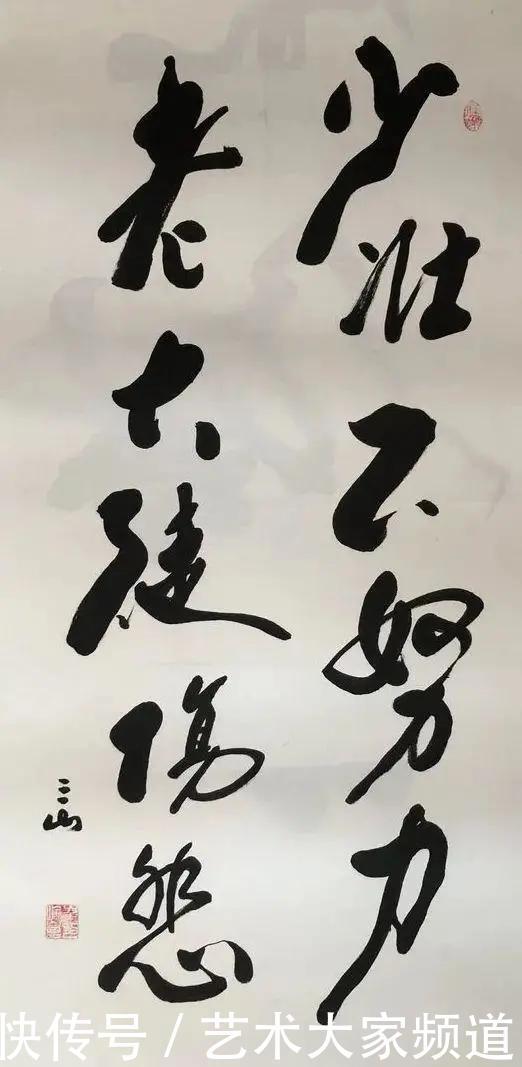 少壮不努力
老大徒傷悲
三山
快传号 / 艺术大家频道